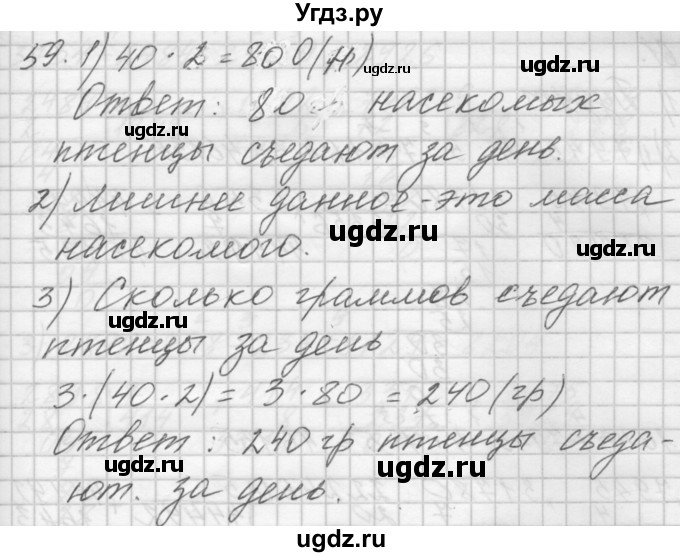 Угдз.ру
59. 1) 40 · 2 = 80 0(н)
ugdz.ru
ugdz.ru
Ответ: 80 насекомых
ugdz.ru
птенцы съедают за день.
2) Лишнее данное - это масса
ugdz.ru
ugdz.ru
насекомого.
3) Сколько граммов съедают
ugdz.ru
ugdz.ru
птенцы за день
3·(40·2) = 3·80 = 240(гр)
ugdz.ru
Ответ: 240 гр птенцы съеда-
ugdz.ru
ugdz.ru
ют. за день.
ugdz.ru